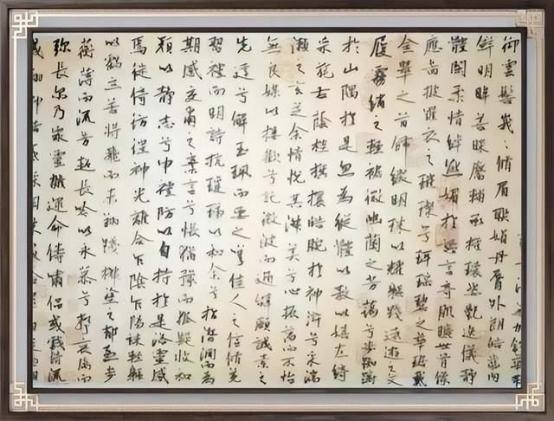 御雲髻峩峩脩眉聯娟丹唇外朗皓齒內
鮮明眸善睞靨輔承權瓌姿艷逸儀靜
體閑柔情綽態媚於語言奇服曠世骨像
應啚披羅衣之璀璨兮珥瑤碧之華琚戴
金翠之首飾綴明珠以耀軀踐遠遊之文
履曳霧綃之輕裾微幽蘭之芳藹兮步踟躕
於山隅於是忽焉縱體以敖以嬉左倚
采旄右蔭桂旗攘皓腕於神滸兮采湍
瀨之玄芝余情悅其淑美兮心振蕩而不怡
無良媒以接歡兮託微波而通辭願誠素之
先達兮解玉佩而要之嗟佳人之信脩羌
習禮而明詩抗瓊珶以和余兮指潛淵而為
期感交甫之棄言兮悵猶豫而狐疑收和
顏以靜志兮申禮防以自持於是洛靈感
焉徙倚彷徨神光離合乍陰乍陽竦輕軀
以鶴立若將飛而未翔踐椒塗之郁烈步
蘅薄而流芳超長吟以永慕兮聲哀厲而
彌長爾乃眾靈雜遝命儔嘯侶或戲清流